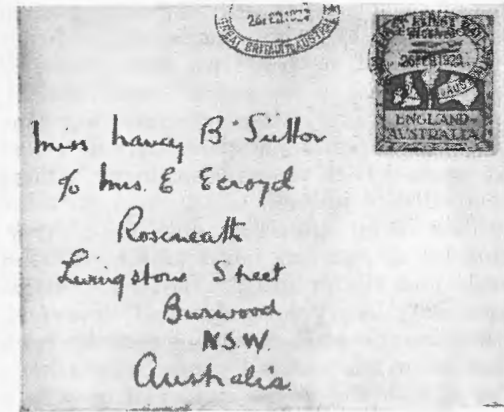 26 FEB 1920
GREAT BRITAIN TO AUSTRALIA
26 FEB 1920
ENGLAND-
AUSTRALIA
Miss Nancy B. Suttor
c/o Mrs. E Ecroyd
Roseneath
Livingstone Street
Burwood
N.S.W.
Australia